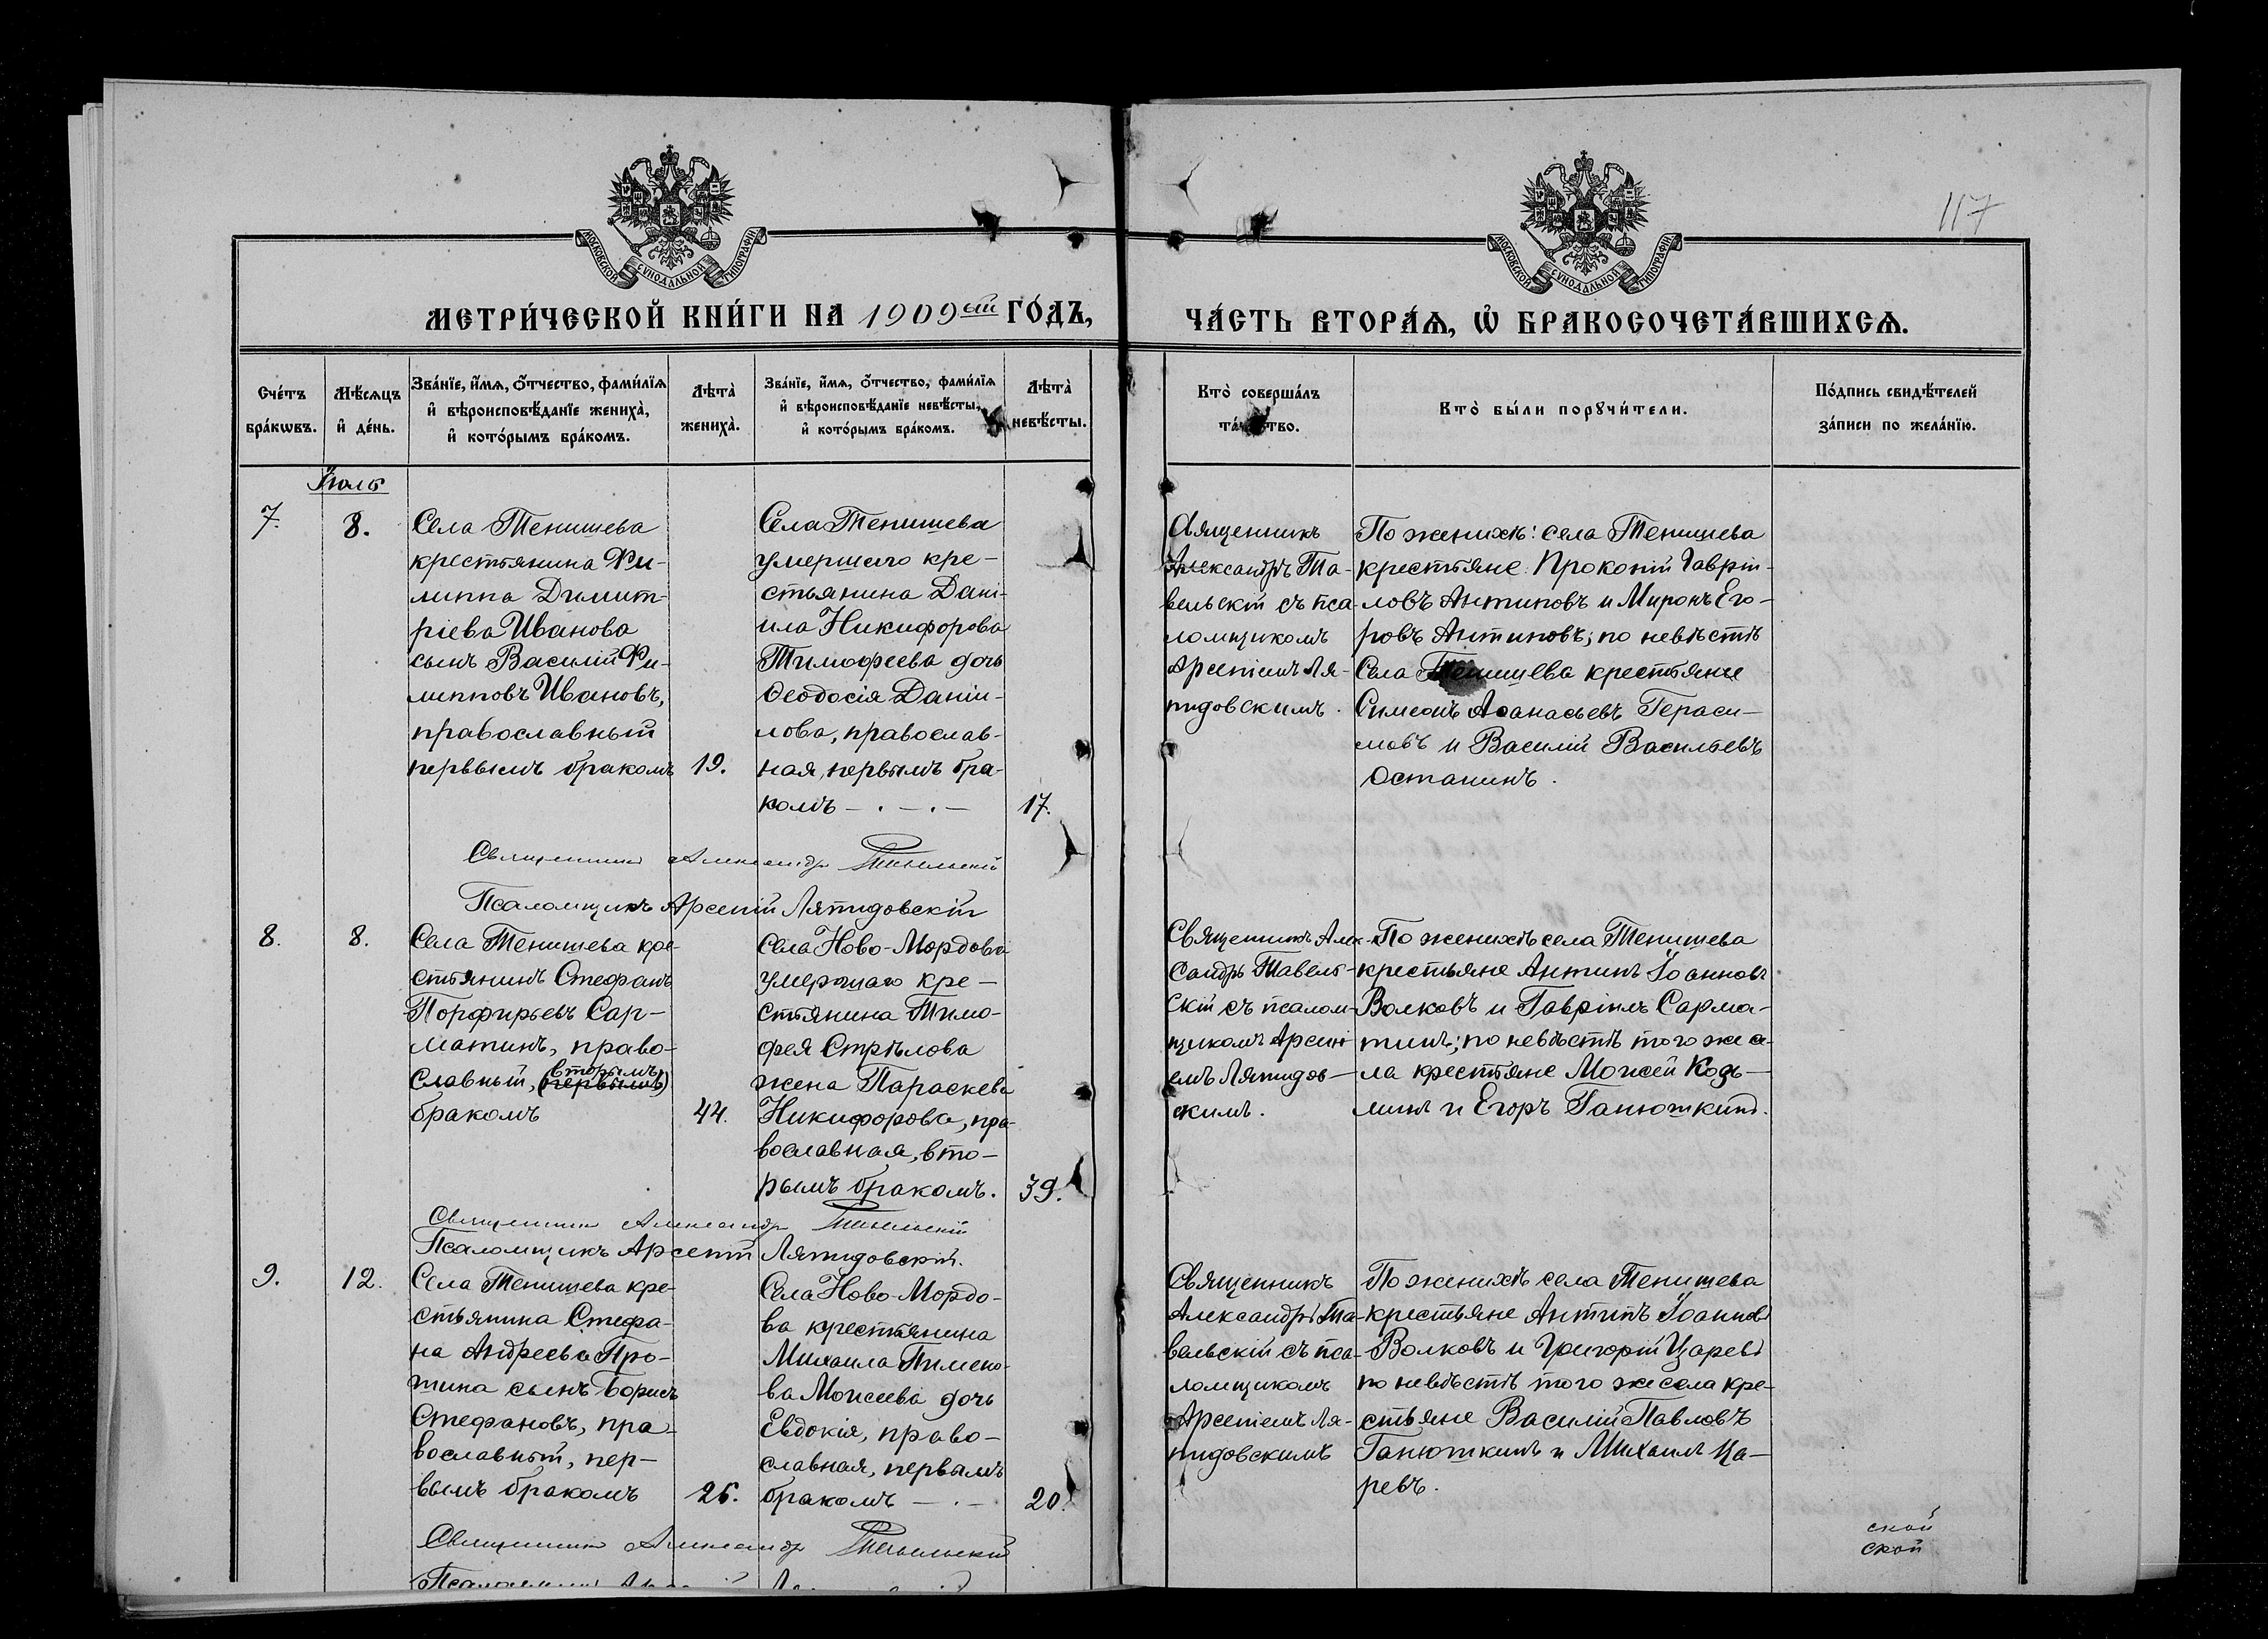 117
МОСКОВСКОЙ СѴНОДАЛЬНОЙ ТИПОГРАФІИ
МОСКОВСКОЙ СѴНОДАЛЬНОЙ ТИПОГРАФІИ
МЕТРИ́ЧЕСКОЙ КНИ́ГИ НА 1909ый ГО́ДЪ,
ЧА́СТЬ ВТОРА́Ѧ, Ѽ БРАКОСОЧЕТА́ВШИХСѦ.
Сче́тъ
бра́кѡвъ.
Мѣ́сѧцъ
и҆ де́нь.
Зва́нїе, и҆́мѧ, ѻ҆́тчество, фами́лїѧ
и҆ вѣроисповѣ́данїе жениха̀,
и҆ кото́рымъ бра́комъ.
Лѣта̀
жениха̀.
Зва́нїе, и҆́мѧ, ѻ҆́тчество, фами́лїѧ
и҆ вѣроисповѣ́данїе невѣ́сты,
и҆ кото́рымъ бра́комъ.
Лѣта̀
невѣ́сты.
Кто̀ соверша́лъ
та́инство.
Кто̀ бы́ли порꙋчи́тели.
По́дпись свидѣ́телей
за́писи по жела́нїю.
Іюль
7.
8.
Села Тенишева
крестьянина Фи-
липпа Димит-
ріева Иванова
сынъ Василій Фи-
липповъ Ивановъ,
православный
первымъ бракомъ
19.
Села Тенишева
умершего кре-
стьянина Дані-
ила Никифорова
Тимофеева дочь
Ѳеодосія Даніи-
лова, православ-
ная, первымъ бра-
комъ — . — . —
17.
Священникъ
Александръ Та-
вельскій съ пса-
ломщикомъ
Арсеніемъ Ля-
пидовскимъ.
По женихѣ: села Тенишева
крестьяне: Прокопій Гаврій-
ловъ Антиповъ и Миронъ Его-
ровъ Антиповъ; по невѣстѣ
Села Тенишева крестьяне
Симеонъ Аѳанасьевъ Гераси-
мовъ и Василій Васильевъ
Останинъ.
Священникъ Александръ Тавельскій
Псаломщикъ Арсеній Ляпидовскій
8.
8.
Села Тенишева кре-
стьянинъ Стефанъ
Порфирьевъ Сар-
матинъ, право-
вторымъ
славный, (первымъ)
бракомъ
44.
Села Ново-Мордова
умершаго кре-
стьянина Тимо-
фея Стрѣлова
жена Параскева
Никифорова, пра-
вославная, вто-
рымъ бракомъ.
39.
Священникъ Алек-
сандръ Тавель-
скій съ псалом-
щикомъ Арсені-
емъ Ляпидов-
скимъ.
По женихѣ села Тенишева
крестьяне Антипъ Іоанновъ
Волковъ и Гавріилъ Сарма-
тинъ; по невѣстѣ того же се-
ла крестьяне Моисей Козь-
минъ и Егоръ Ганюшкинъ.
Священникъ Александръ Тавельскій
Псаломщикъ Арсеній Ляпидовскій.
9.
12.
Села Тенишева кре-
стьянина Стефа-
на Андреева Про-
тина сынъ Борисъ
Стефановъ, пра-
вославный, пер-
вымъ бракомъ
26.
Села Ново-Мордо-
ва крестьянина
Михаила Пимено-
ва Моисеева дочь
Евдокія, право-
славная, первымъ
бракомъ — . —
20.
Священникъ
Александръ Та-
вельскій съ пса-
ломщикомъ
Арсеніемъ Ля-
пидовскимъ
По женихѣ села Тенишева
крестьяне Антипъ Іоанновъ
Волковъ и Григорій Царевъ
по невѣстѣ того же села кре-
стьяне Василій Павловъ
Ганюшкинъ и Михаилъ Ца-
ревъ.
Священникъ Александръ Тавельскій
ской
ской